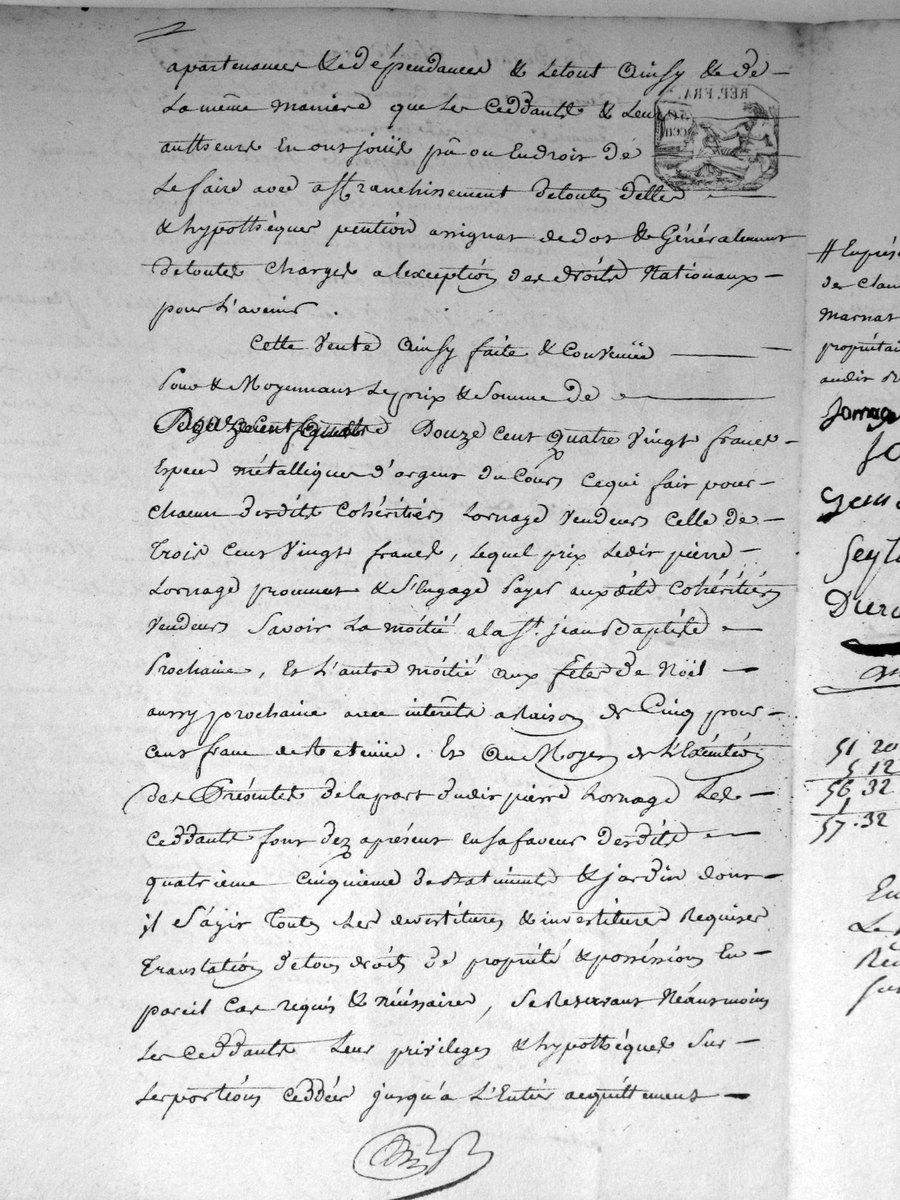 apartenances & dépendances & le tout ainsy & de
la même maniere que les Ceddants & leurs
autheurs en ont joüit pû ou en droit de
le faire avec affranchissement de toutes dettes
& hypothèques pention assignat de dot & Généralement
de toutes charges a l'exception des droits Nationaux
pour l'avenir.
Cette vente ainsy faite & Convenüe
Pour & Moyennant le prix & Somme de
Douze cent quatre vingt francs
Espece métalliques d'argent du Cours ce qui fait pour
chacun desdits Cohéritiers Lornage vendeurs celle de
trois cent vingt francs, lequel prix ledit pierre
Lornage promet & s'Engage payer auxdits Cohéritiers
vendeurs Savoir la moitié a la St. jean Baptiste
Prochaine, Et l'autre moitié aux fêtes de Noël
aussy prochaine avec intérêts a Raison de Cinq pour
cent franc de Retenüe. Et au Moyen de l'Exécution
des Présentes de la part dudit pierre Lornage Les
Ceddants font dez aprésent en sa faveur desdits
quatrieme cinquieme de Batiments & jardin dont
il s'agit toutes les devestitures & investitures Requises
translation de tous droits de propriété & possession En
pareil cas requis & nécéssaires, se Reservant Néanmoins
Les Ceddants Leur privileges & hypothéques Sur
Les portions Ceddées jusqu'a l'Entier acquittement
REP. FRA.
50
CEN
de Clau
Marnat
propriétai
audit
Jean
Seyt
51 20
5 12
56 32
1
57.32
En
Le